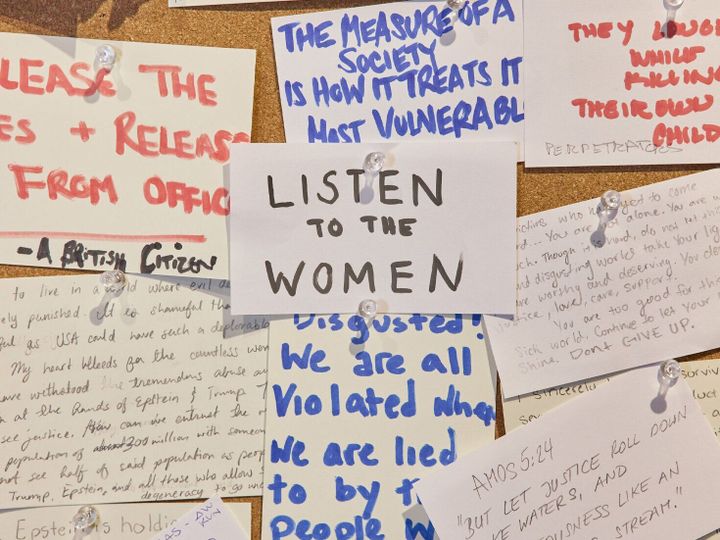 LEASE THE
ES + RELEASE
FROM OFFIC
- A BRITISH CITIZEN
THE MEASURE OF A
SOCIETY
IS HOW IT TREATS IT
MOST VULNERABL
THEY LAUGH
WHILE
KILLING
THEIR OWN
CHILD
PERPETRATORS
LISTEN
TO THE
WOMEN
to live in a world where evil de
ely punished. It so shameful tha
ful as USA could have such a deplorable
My heart bleeds for the countless wom
have withstood the tremendous abuse an
n at the hands of Epstein & Trump T
see justice. How can we entrust the
population of 300 million with someon
not see half of said population as peop
Trump, Epstein, and all those who allow
degeneracy to go un
Disgusted!
We are all
Violated when
We are lied
to by t
people w
victims who have yet to come
rd... You are not alone. You are
ch. Though it's hard, do not let th
and disgusting world take your lig
are worthy and deserving. You de
stice, love, care, support.
You are too good for th
sick world. Continue to let your
shine. DONT GIVE UP.
surviv
sincerely
AMOS 5:24
"BUT LET JUSTICE ROLL DOWN
KE WATERS, AND
OUSNESS LIKE AN
STREAM."
Epstein is holdi
RUN